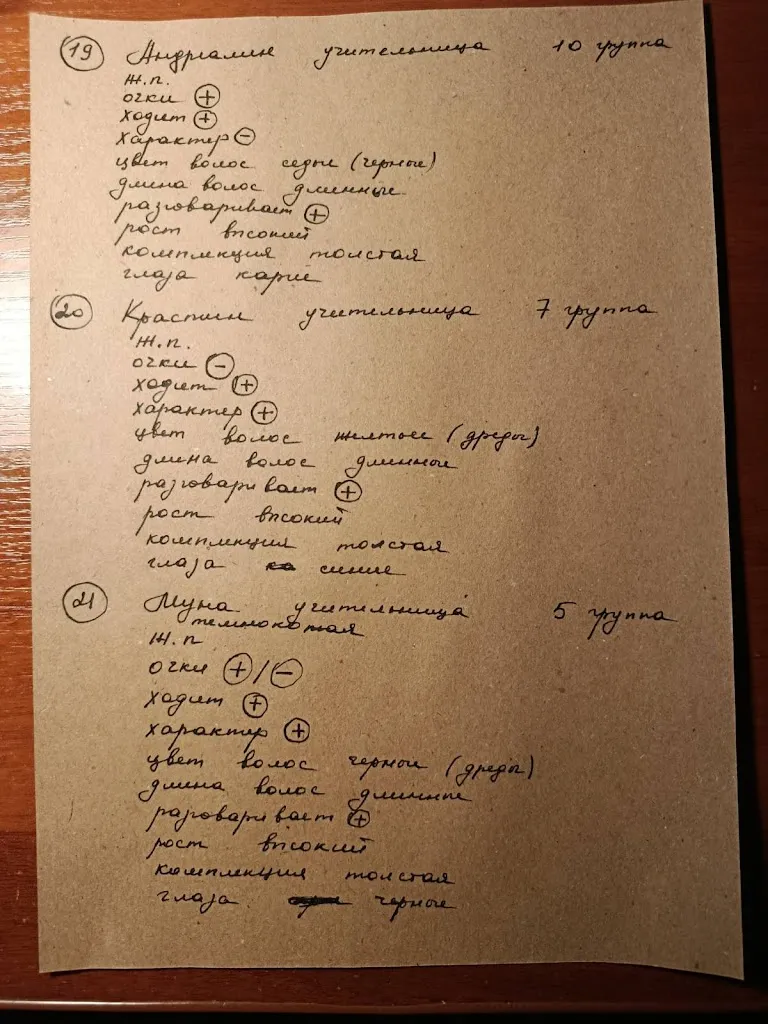 19 Андриалин учительница 10 группа
ж.п.
очки +
ходит +
характер -
цвет волос седые (черные)
длина волос длинные
разговаривает +
рост высокий
комплекция толстая
глаза карие
20 Красти учительница 7 группа
ж.п.
очки -
ходит +
характер +
цвет волос желтые (дреды)
длина волос длинные
разговаривает +
рост высокий
комплекция толстая
глаза синие
21 Муна учительница 5 группа
темнокожая
ж.п
очки +/-
ходит +
характер +
цвет волос черные (дреды)
длина волос длинные
разговаривает +
рост высокий
комплекция толстая
глаза черные